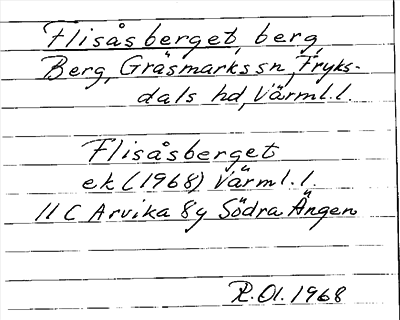 Flisåsberget, berg,
Berg, Gräsmarks sn, Fryks-
dals hd, Värml.l.
Flisåsberget
ek (1968) Värml.l.
11 C Arvika 8g Södra Ängen
R.Ol. 1968